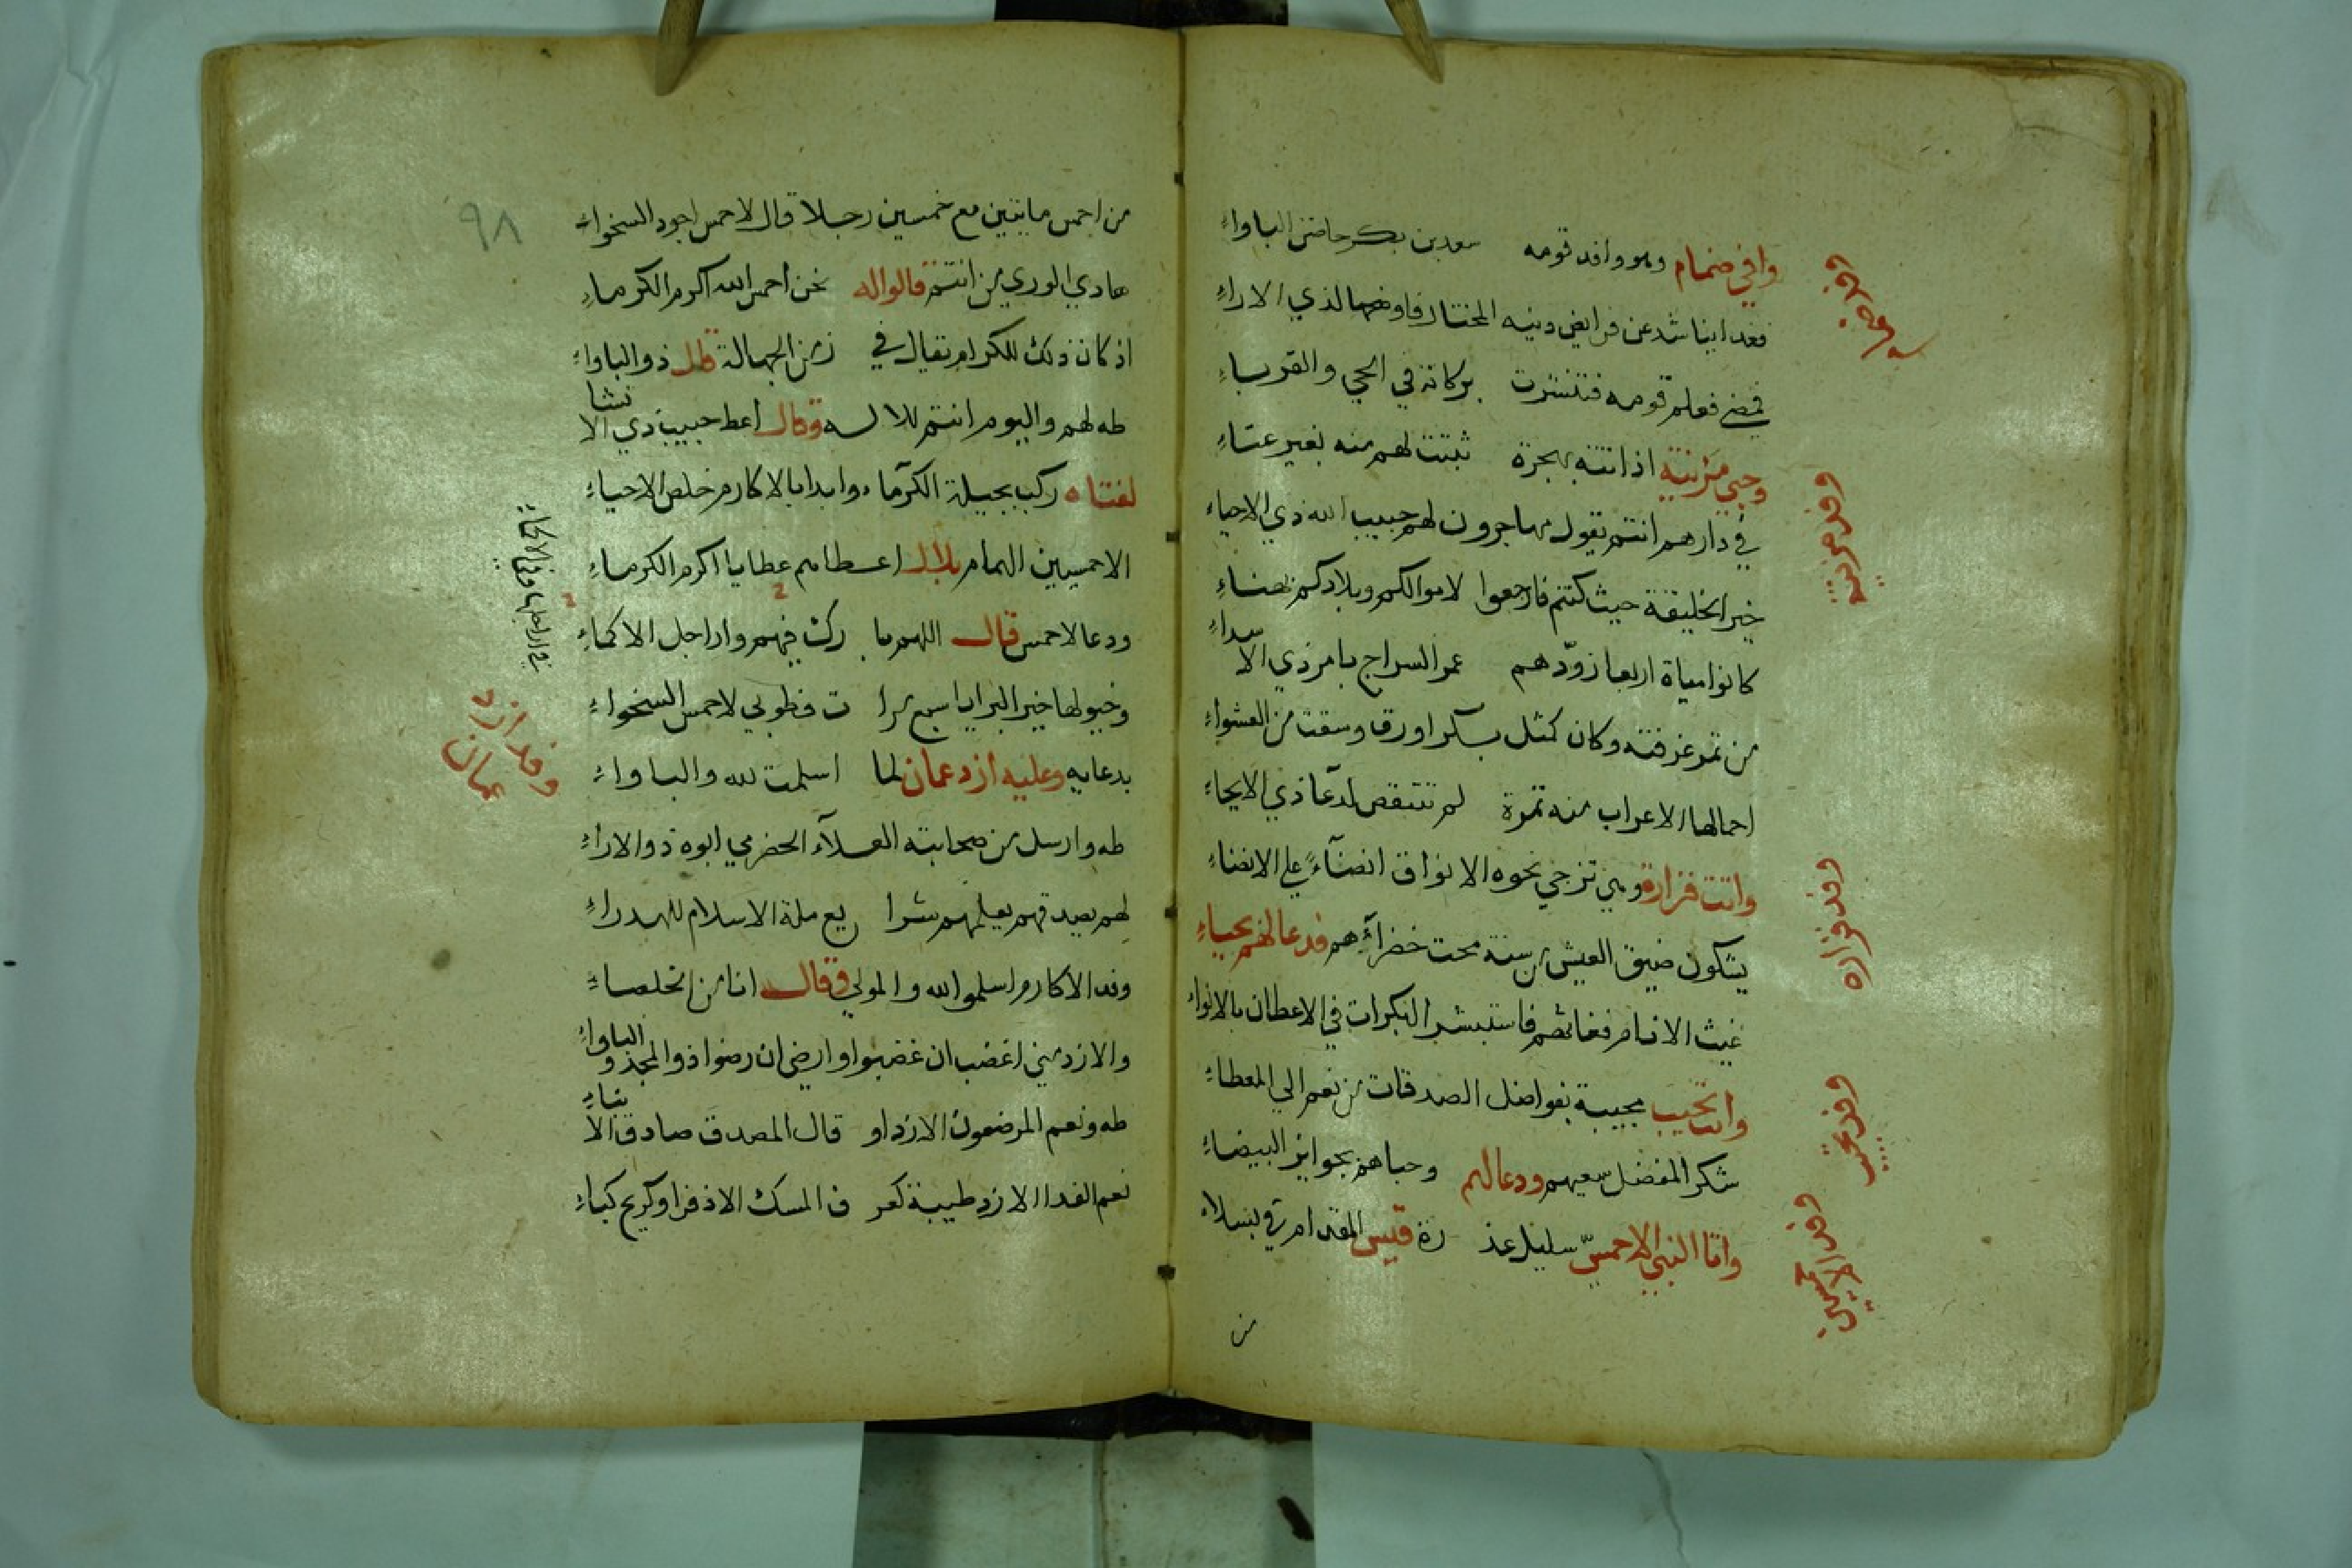 وافي ضمام وهو وافد قومه سعد بن بكر حاضني الباواء
فغدا يناشد عن فرايض دينه المختار فاوضحها لذي الاراء
فمضى فعلم قومه فتنشرت بركاته في الحي والقرباء
وحبي مزينة اذ اتته بهجرة ثبتت لهم منه بغير عناء
في دارهم انتم يقول مهاجرون لهم حبيب الله ذي الاحياء
خير الخليقة حيث كنتم فارجعوا لاموالكم وبلادكم بهناء
كانوا مياة اربعا زودهم عمر السراج بامر ذي الاسداء
من تمر غرفته وكان كمثل بكر اورق وسقت من العشواء
احمالها الاعراب منه تمرة لم تنتقص لدعا ذي الايحاء
واتت فزارة وهي تزجي نحوه الانواق انضاء على الانضاء
يشكون ضيق العيش من سنة محت خضراءهم فدعا لهم بحياء
غيث الانام فغاثهم فاستبشر البكرات في الاعطان بالانواء
واتت تجيب مجيبة بفواضل الصدقات من نعم الي المعطاء
شكر المفضل سعيهم ودعا لهم وحباهم بجوايز البيضاء
واتا النبي الاحمسي سليل عذ رة قيس المقدام في نبلاء
من
وفد مزينة
وفد فزاره
وفد تجيب
وفد الاحمسين
٩٨
من احمس مايتين مع خمسين رجلا قال لاحمس اجود السخواء
هادي الوري من انتم قالوا له نحن احمس الله اكرم الكرماء
اذ كان ذلك للكرام يقال في زمن الجهالة قال ذو الباواء
طه لهم واليوم انتم للاله وقال اعط حبيب ذي الانشا
لفتاه ركب بجيلة الكرماء وابدا بالاكارم خلص الاحياء
الاحمسيين الهمام بلال اعطاهم عطايا اكرم الكرماء
ودعا لاحمس قال اللهم با رك فيهم واراجل الاكماء
وخيولها خير البرايا سبع مرا ت فطوبي لاحمس السخواء
بدعايه وعليه ازد عمان لما اسلمت لله والباواء
طه وارسل من صحابته العلاء الحضرمي ابوه ذو الاراء
لهم يصدقهم يعلمهم شرا يع ملة الاسلام للهدراء
وفد الاكارم اسلموا لله والمولي وقال انا من الخلصاء
والازد مني اغضب ان غضبوا وارضى ان رضوا ذو المجد والباواء
طه ونعم المرضعون الازد او قال المصدق صادق الانباء
نعم الغدا الازد طيبة كعر ف المسك الاذفر او كريح كباء
وفد ازد
عمان